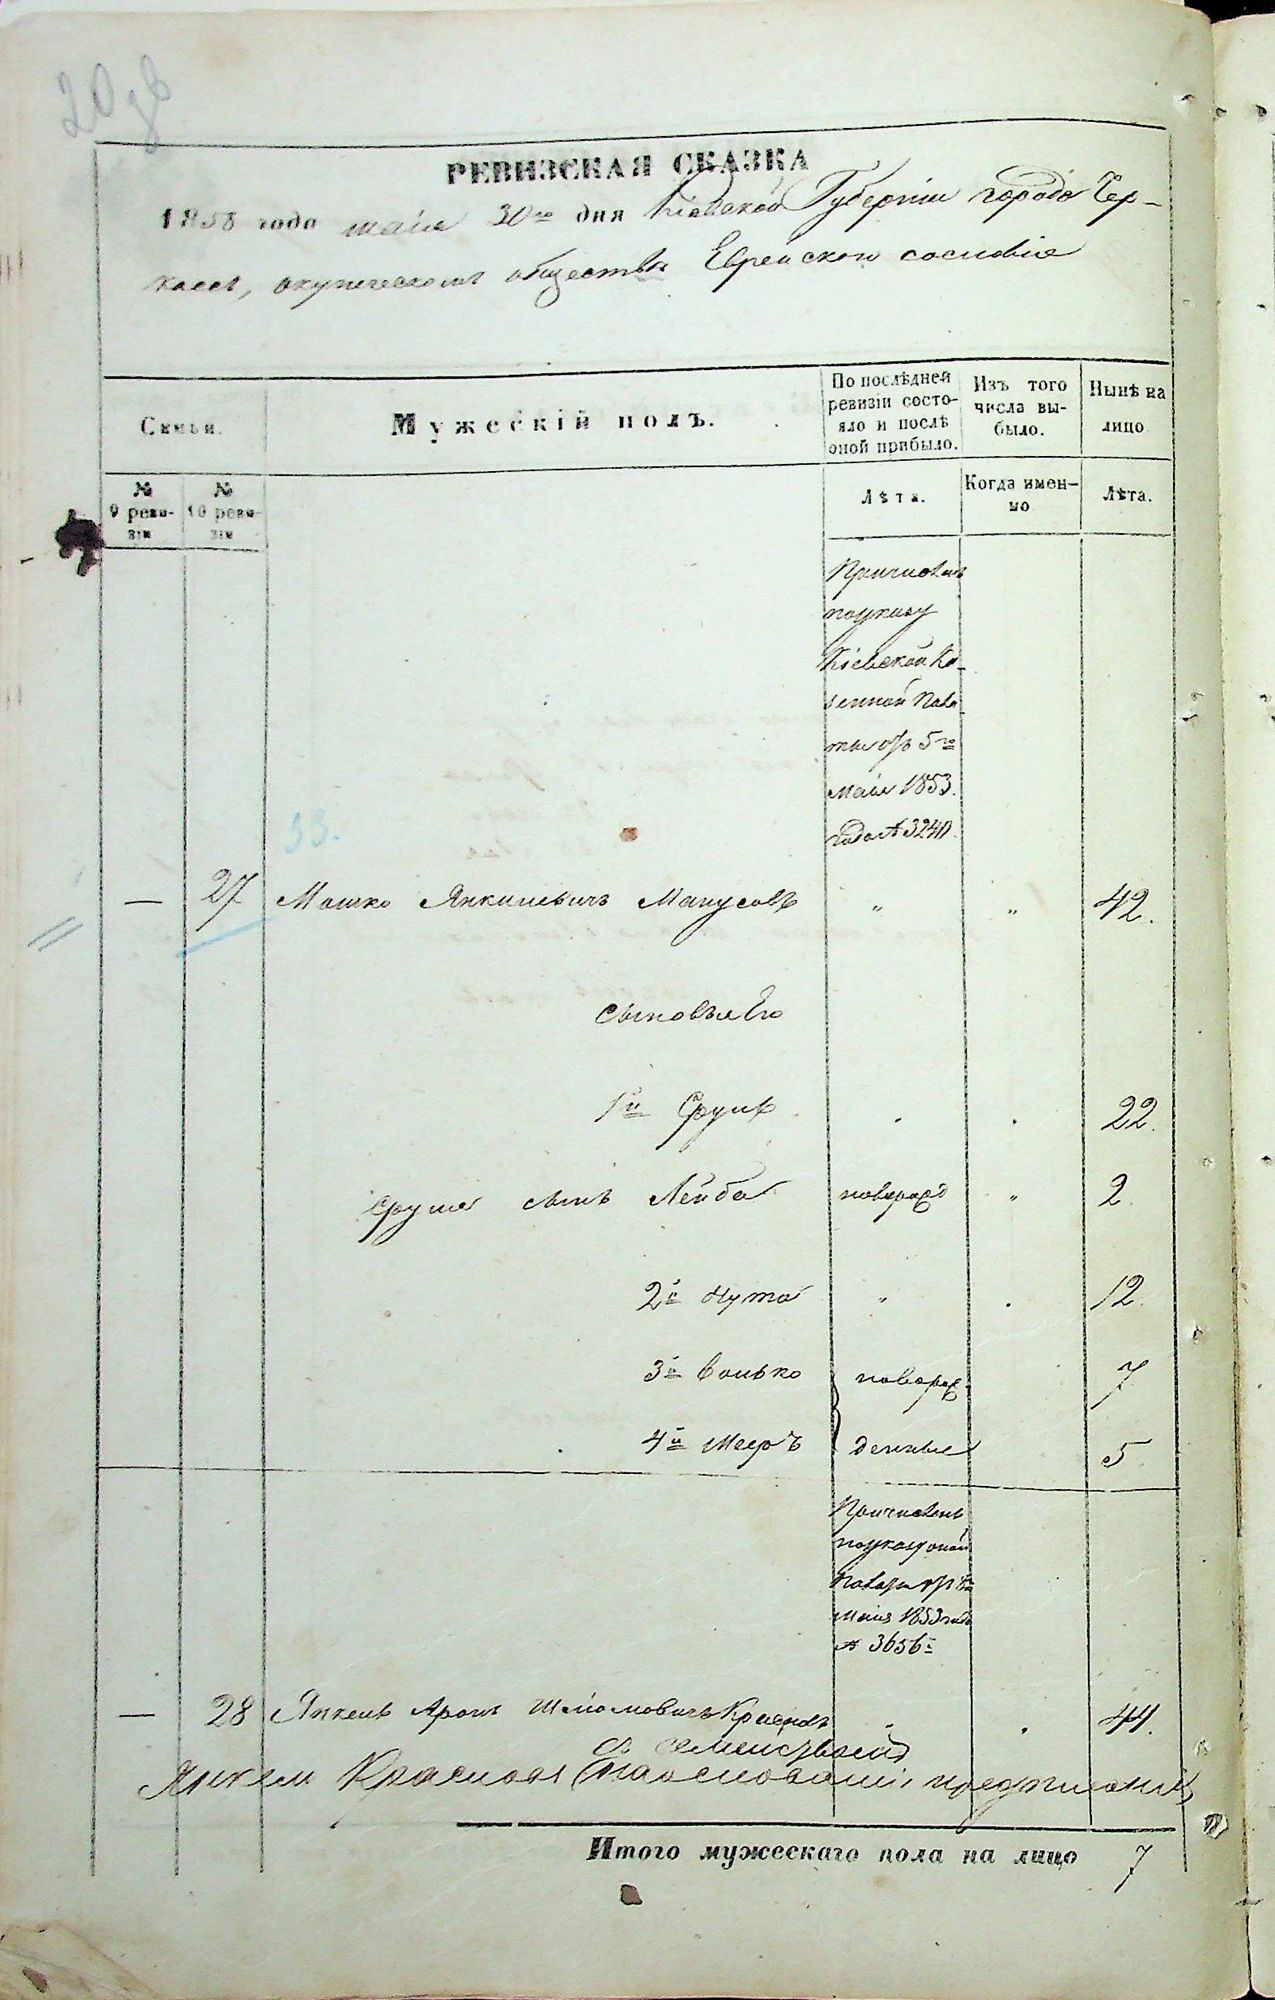 РЕВИЗСКАЯ СКАЗКА
1858 года маія 30го дня Кіевской Губерніи города Чер-
касъ, о купеческомъ обществѣ Еврейского сословія
Семьи.
Мужескій полъ.
По послѣдней ревизіи состояло и послѣ оной прибыло.
Изъ того числа выбыло.
Нынѣ на лицо
№ 9 ревизіи
№ 10 ревизіи
Лѣта.
Когда именно
Лѣта.
Причисленъ
по указу
Кіевской Ка-
зенной Пала-
ты отъ 5го
маія 1853
года № 3240.
33.
— 27 Мошко Янкилевичъ Манусовъ „ „ 42.
Сыновья Его
1й Сруль 22.
Сруля сынъ Лейба новорожд „ 2
2й Нута „ 12.
3й Волько новорож- 7
4й Мееръ денные 5
Причисленъ
по указу оной
Палаты отъ
маія 1853 года
№ 3656
— 28 Янкель Аронъ Шліомовичъ Красновъ 44.
съ семействомъ
Янкель Красновъ (на основаніи предписанія
Итого мужескаго пола на лицо 7